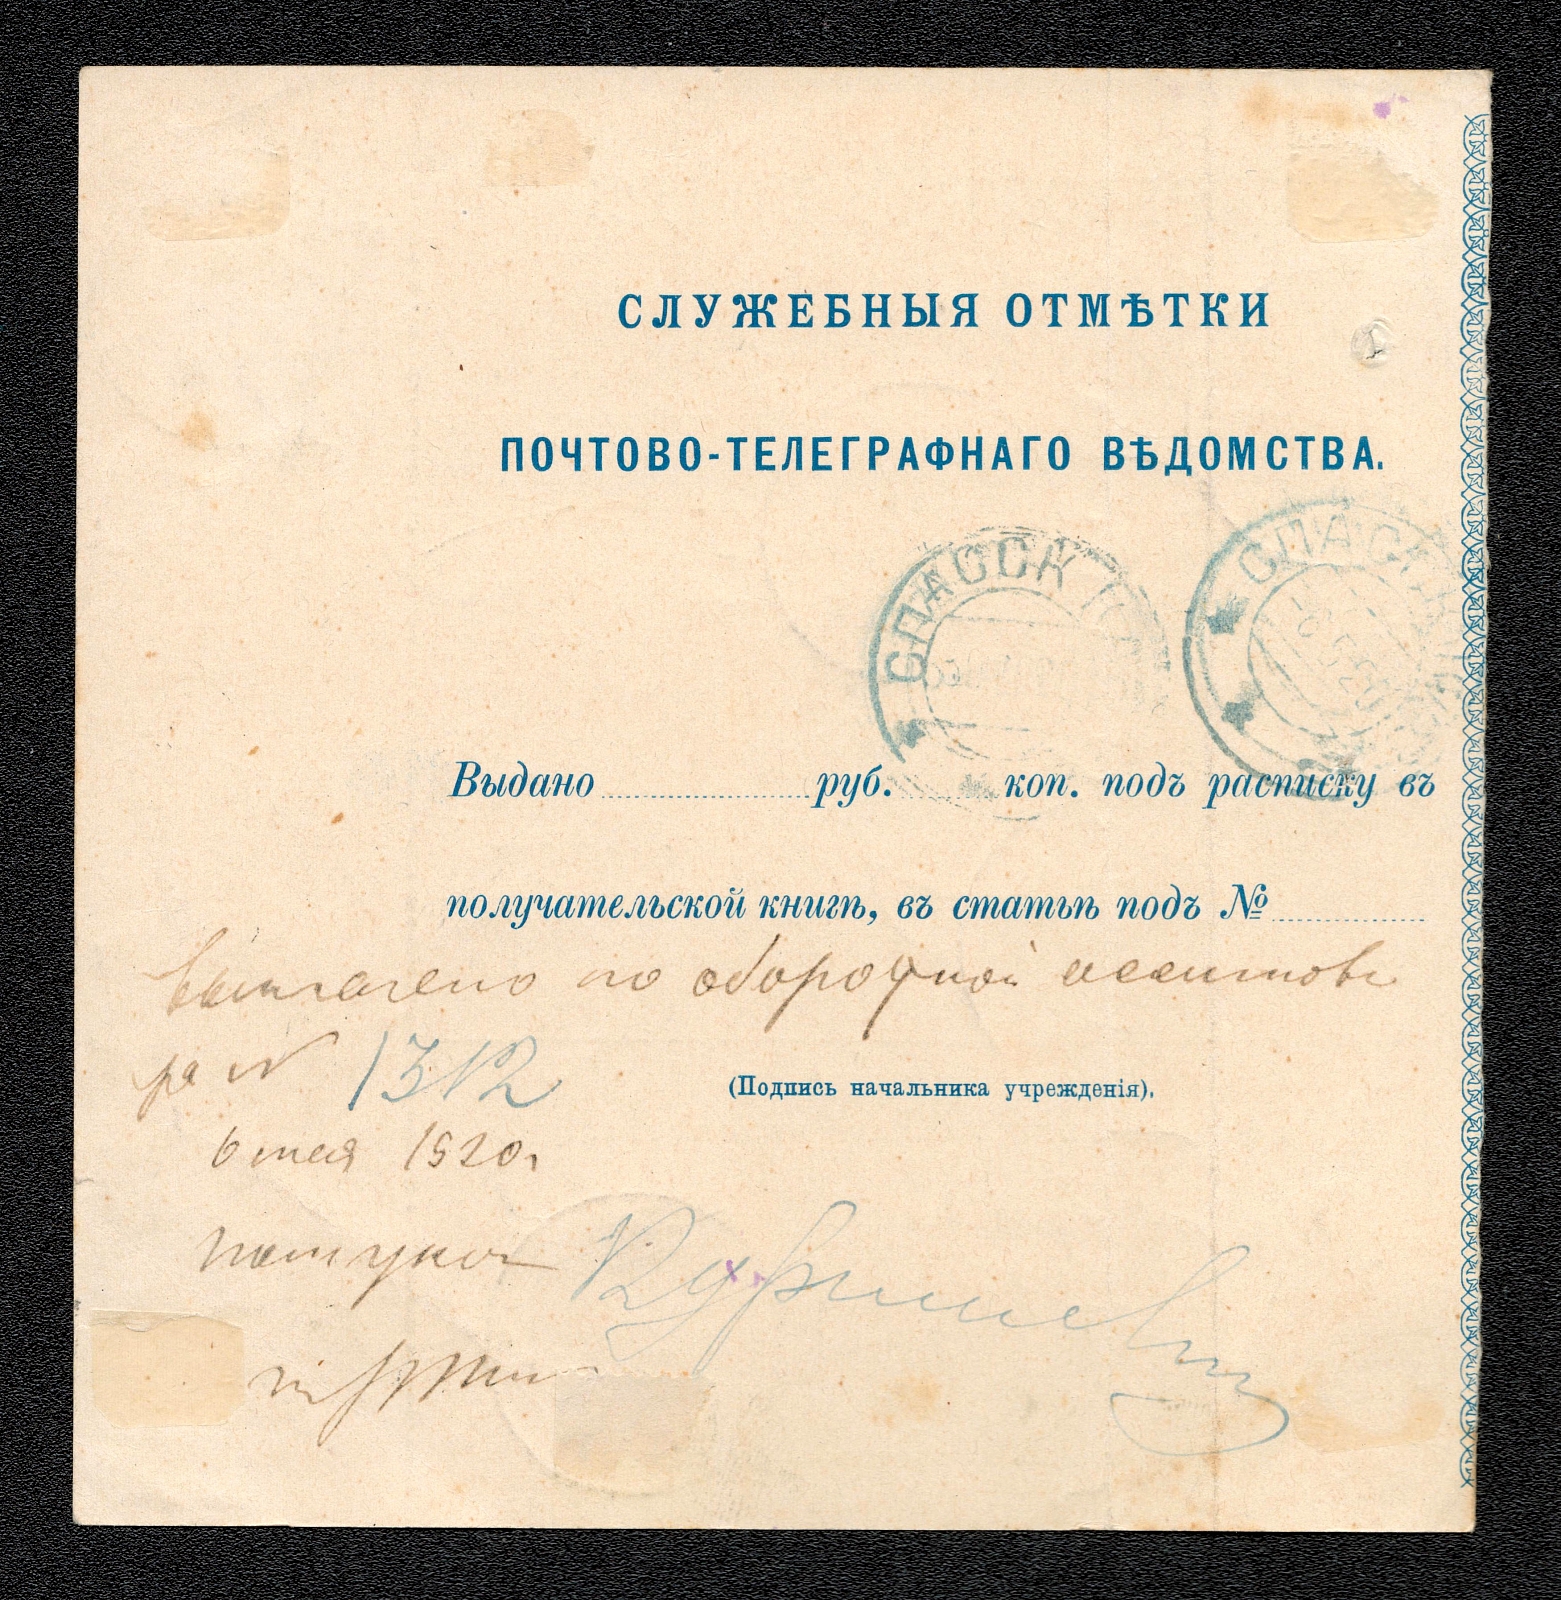 СЛУЖЕБНЫЯ ОТМѢТКИ
ПОЧТОВО-ТЕЛЕГРАФНАГО ВѢДОМСТВА.
СПАССК
СПАССК
Выдано руб. коп. подъ расписку въ
получательской книгѣ, въ статьѣ подъ №
по оборотной
№ 1312
(Подпись начальника учрежденія).
6 мая 1920г